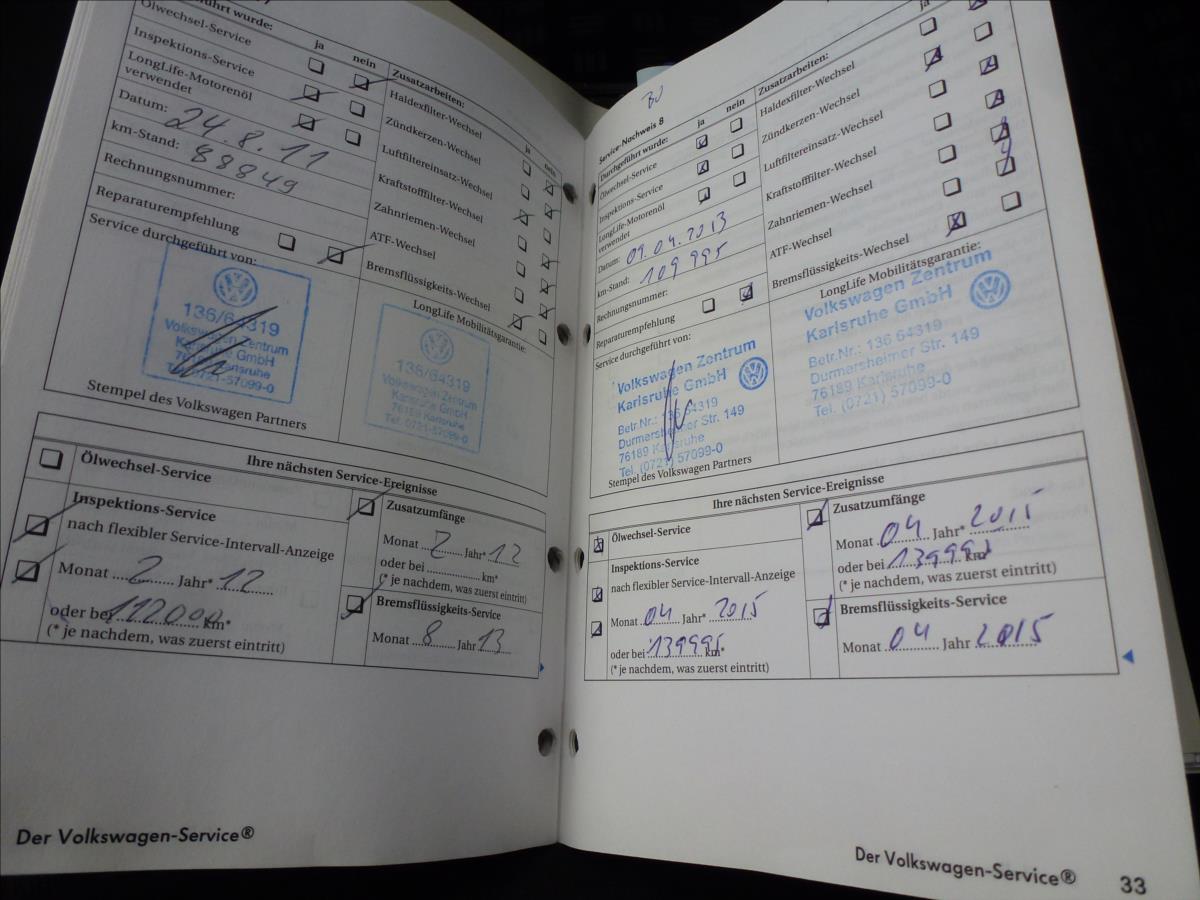 führt wurde:
ja
nein
Ölwechsel-Service
Inspektions-Service
LongLife-Motorenöl
verwendet
Datum: 24.8.11
km-Stand: 88849
Rechnungsnummer:
Reparaturempfehlung
Service durchgeführt von:
136/64319
Volkswagen Zentrum
Karlsruhe GmbH
76189 Karlsruhe
Tel. 0721-57099-0
Stempel des Volkswagen Partners
Zusatzarbeiten:
ja
nein
Haldexfilter-Wechsel
Zündkerzen-Wechsel
Luftfiltereinsatz-Wechsel
Kraftstofffilter-Wechsel
Zahnriemen-Wechsel
ATF-Wechsel
Bremsflüssigkeits-Wechsel
LongLife Mobilitätsgarantie:
136/64319
Volkswagen Zentrum
Karlsruhe GmbH
76189 Karlsruhe
Tel. 0721-57099-0
Ihre nächsten Service-Ereignisse
Ölwechsel-Service
Inspektions-Service
nach flexibler Service-Intervall-Anzeige
Monat 2 Jahr* 12
oder bei 112000 km*
(* je nachdem, was zuerst eintritt)
Zusatzumfänge
Monat 2 Jahr* 12
oder bei km*
(* je nachdem, was zuerst eintritt)
Bremsflüssigkeits-Service
Monat 8 Jahr 13
Der Volkswagen-Service®
Service-Nachweis 8
Durchgeführt wurde:
ja
nein
Ölwechsel-Service
Inspektions-Service
LongLife-Motorenöl
verwendet
Datum: 09.04.2013
km-Stand: 109995
Rechnungsnummer:
Reparaturempfehlung
Service durchgeführt von:
Volkswagen Zentrum
Karlsruhe GmbH
Betr.Nr.: 136 64319
Durmersheimer Str. 149
76189 Karlsruhe
Tel. (0721) 57099-0
Stempel des Volkswagen Partners
Zusatzarbeiten:
ja
Haldexfilter-Wechsel
Zündkerzen-Wechsel
Luftfiltereinsatz-Wechsel
Kraftstofffilter-Wechsel
Zahnriemen-Wechsel
ATF-Wechsel
Bremsflüssigkeits-Wechsel
LongLife Mobilitätsgarantie:
Volkswagen Zentrum
Karlsruhe GmbH
Betr.Nr.: 136 64319
Durmersheimer Str. 149
76189 Karlsruhe
Tel. (0721) 57099-0
Ihre nächsten Service-Ereignisse
Ölwechsel-Service
Inspektions-Service
nach flexibler Service-Intervall-Anzeige
Monat 04 Jahr* 2015
oder bei 139995 km*
(* je nachdem, was zuerst eintritt)
Zusatzumfänge
Monat 04 Jahr* 2015
oder bei 139995 km*
(* je nachdem, was zuerst eintritt)
Bremsflüssigkeits-Service
Monat 04 Jahr 2015
Der Volkswagen-Service®
33